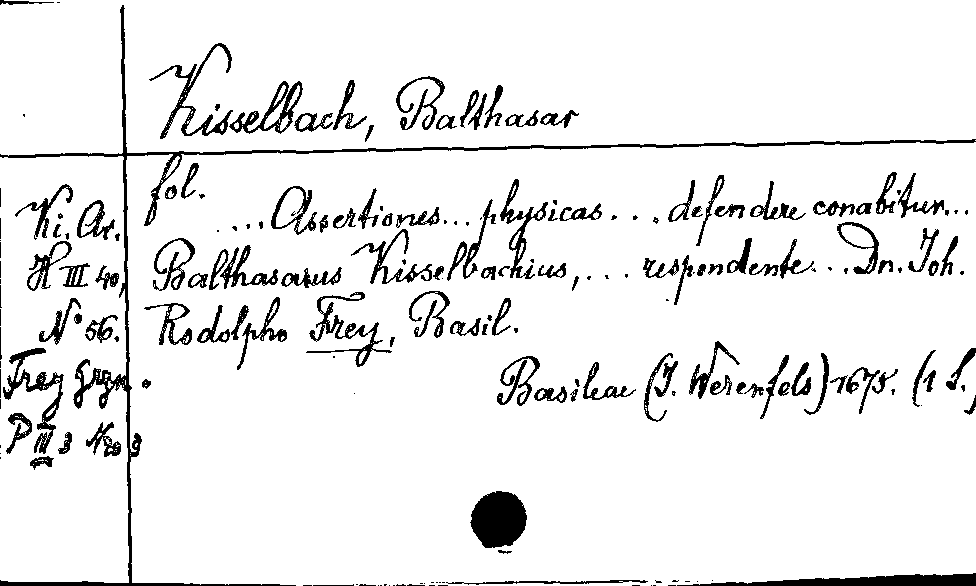 Kisselbach, Balthasar
fol.
...Assertiones... physicas... defendere conabitur...
Balthasarus Kisselbachius,... respondente... Dn. Joh.
Rodolpho Frey, Basil.
Basileae (J. Werenfels) 1675. (1 S.)
Ki. Ar.
H III 40,
No 56.
Frey Gryn.
P III 3 No 3